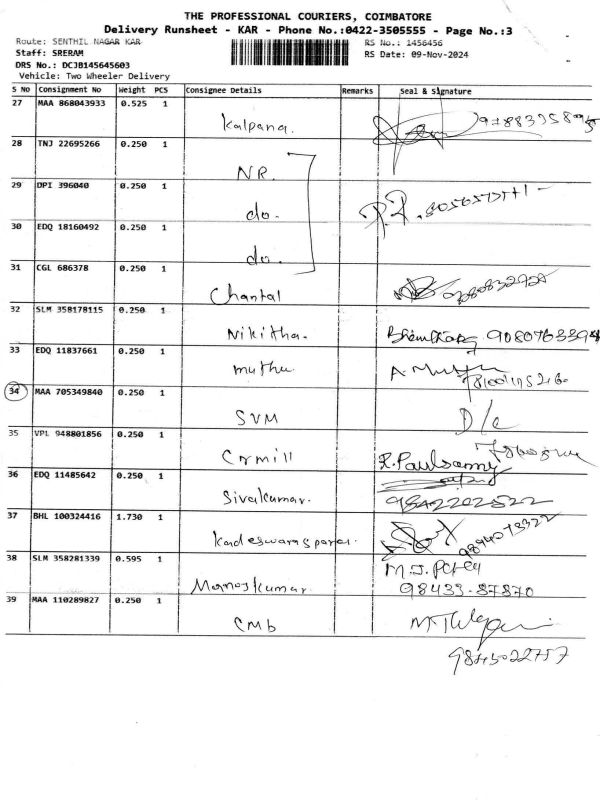 THE PROFESSIONAL COURIERS, COIMBATORE
Delivery Runsheet - KAR - Phone No.:0422-3505555 - Page No.:3
Route: SENTHIL NAGAR KAR
RS No.: 1456456
Staff: SRERAM
RS Date: 09-Nov-2024
DRS No.: DCJB145645603
Vehicle: Two Wheeler Delivery
S No Consignment No Weight PCS Consignee Details Remarks Seal & Signature
27 MAA 868043933 0.525 1
Kalpana.
28 TNJ 22695266 0.250 1
NR.
29 DPI 396040 0.250 1
do.
30 EDQ 18160492 0.250 1
do.
31 CGL 686378 0.250 1
Chantal
32 SLM 358178115 0.250 1
Nikitha.
33 EDQ 11837661 0.250 1
muthu
34 MAA 705349840 0.250 1
SVM D/c
35 VPL 948801856 0.250 1
Crmill R.Paulsamy
36 EDQ 11485642 0.250 1
Sivalkumar. 9842202522
37 BHL 100324416 1.730 1
9894073322
38 SLM 358281339 0.595 1
Manojkumar. 98433-87870
39 MAA 110289827 0.250 1
CMb
9845022757